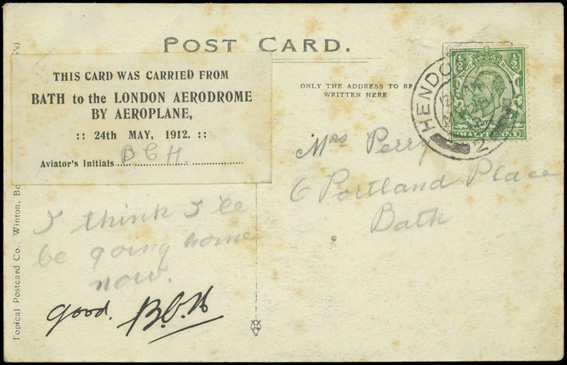 POST CARD.
THIS CARD WAS CARRIED FROM
BATH to the LONDON AERODROME
BY AEROPLANE,
:: 24th MAY, 1912. ::
Aviator's Initials B C H
I think I'll
be going home
now.
good. B.C.H
Topical Postcard Co., Winton,
ONLY THE ADDRESS TO BE
WRITTEN HERE
HENDO
2
Mrs Perry
6 Portland Place
Bath